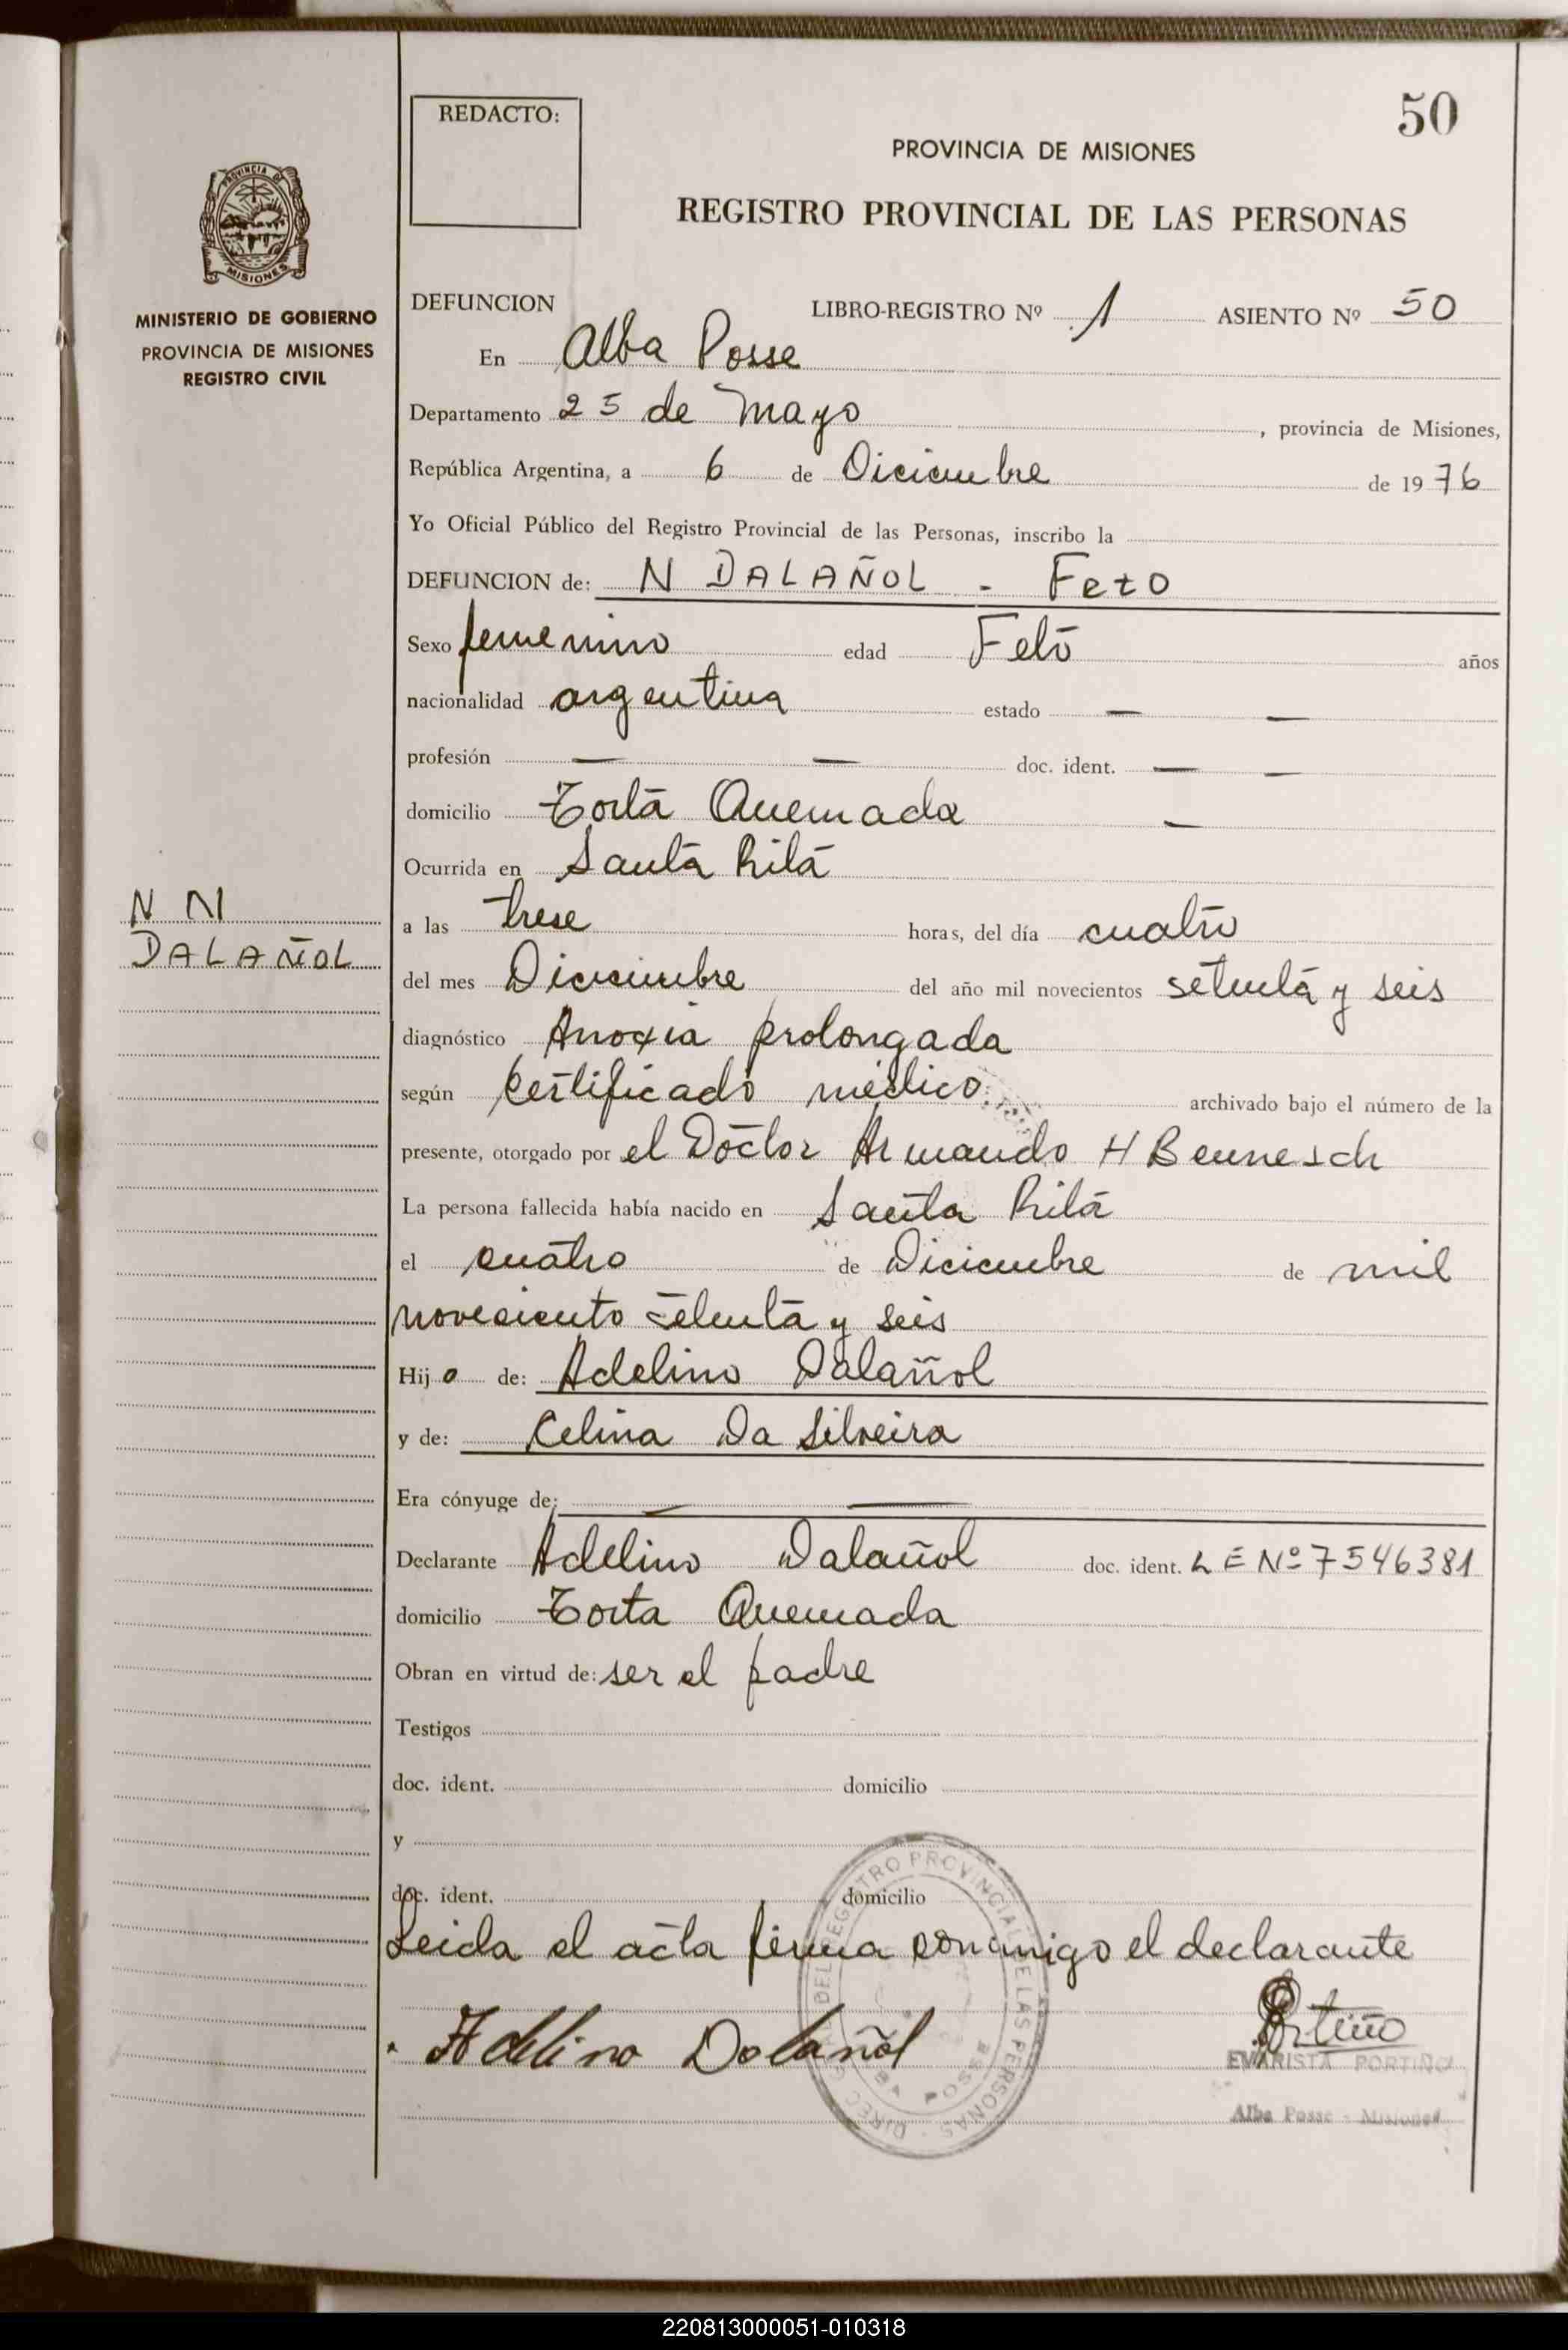 50
REDACTO:
PROVINCIA DE MISIONES
REGISTRO PROVINCIAL DE LAS PERSONAS
PROVINCIA DE
MISIONES
MINISTERIO DE GOBIERNO
PROVINCIA DE MISIONES
REGISTRO CIVIL
DEFUNCION LIBRO-REGISTRO Nº 1 ASIENTO Nº 50
En Alba Posse
Departamento 25 de Mayo, provincia de Misiones,
República Argentina, a 6 de Diciembre de 1976
Yo Oficial Público del Registro Provincial de las Personas, inscribo la
DEFUNCION de: N DALAÑOL - Feto
Sexo femenino edad Feto años
nacionalidad argentina estado — —
profesión — — doc. ident. — —
domicilio Torta Quemada —
Ocurrida en Santa Rita
N N
DALAÑOL
a las trese horas, del día cuatro
del mes Diciembre del año mil novecientos setenta y seis
diagnóstico Anoxia prolongada
según certificado médico archivado bajo el número de la
presente, otorgado por el Doctor Armando H Bennesch
La persona fallecida había nacido en Santa Rita
el cuatro de Diciembre de mil
noveciento setenta y seis
Hijo de: Adelino Dalañol
y de: Celina Da Silveira
Era cónyuge de: — —
Declarante Adelino Dalañol doc. ident. L E Nº 7546381
domicilio Torta Quemada
Obran en virtud de: ser el padre
Testigos
doc. ident. domicilio
y
doc. ident. domicilio
Leida el acta firma conmigo el declarante
Adelino Dolañol
Portiño
EVARISTA PORTIÑO
Alba Posse - Misiones
DEL REGISTRO PROVINCIAL DE LAS PERSONAS
ALBA POSSE
220813000051-010318